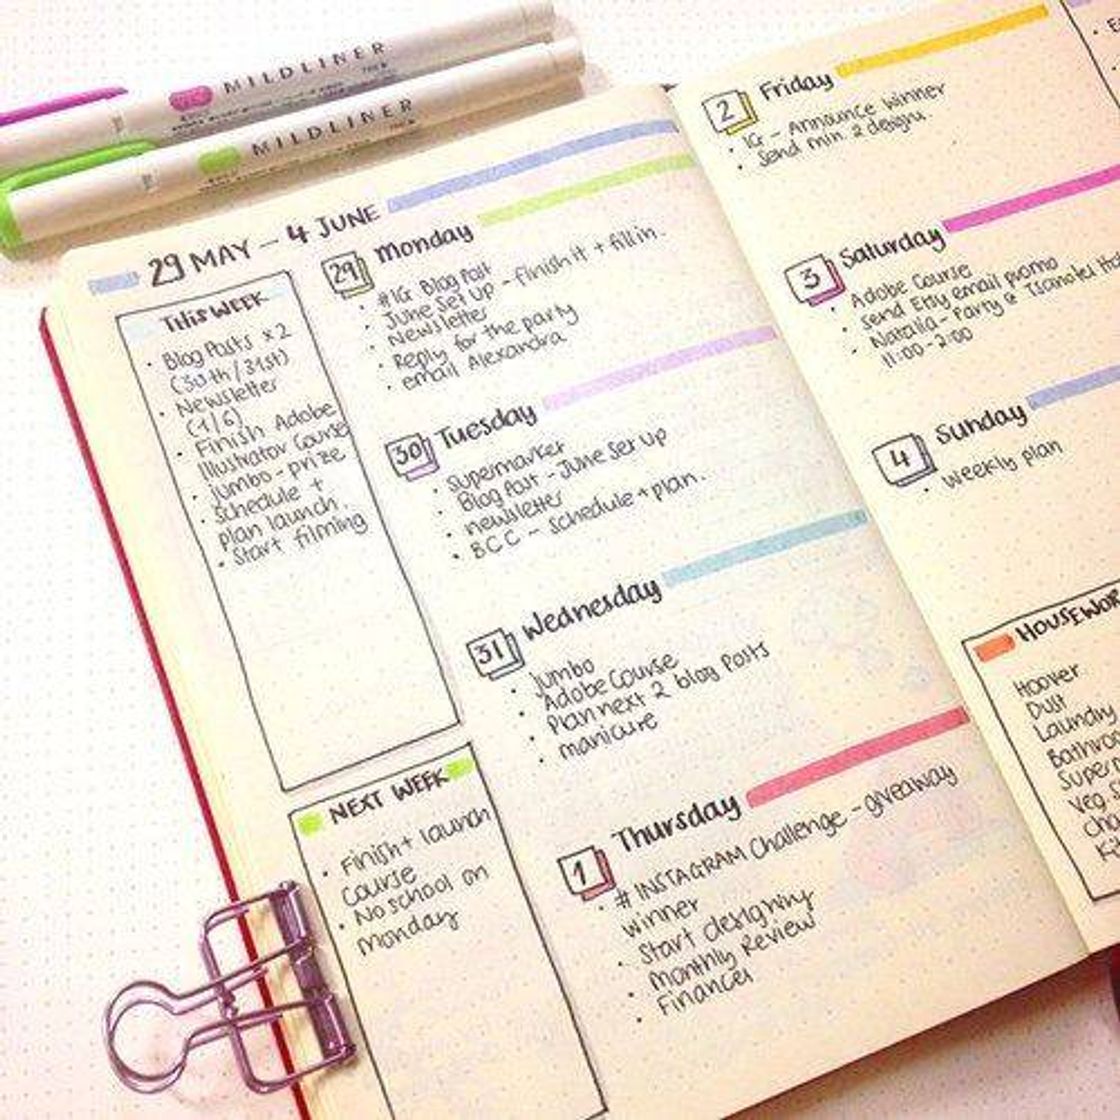 MILDLINER
MILDLINER
29 MAY - 4 JUNE
This WEEK
• Blog Posts x2
(30th/31st)
• Newsletter
(1/6)
• Finish Adobe
Illustrator Course
• Jumbo - prize
• Schedule +
plan launch.
• Start filming
NEXT WEEK
• Finish + launch
Course
• No school on
Monday
29 Monday
• #IG Blog Post
• June Set up - finish it + fill in.
• Newsletter
• Reply for the party
• email Alexandra
30 Tuesday
• Supermarket
• Blog Post - June Set up
• newsletter
• BCC - schedule + plan.
31 Wednesday
• Jumbo
• Adobe Course
• Plan next 2 blog posts
• manicure
1 Thursday
• #INSTAGRAM Challenge - giveaway
winner
• Start designing
• Monthly Review
• Finances
2 Friday
• IG - Announce winner
• Send min 2 designs
3 Saturday
• Adobe Course
• Send Etsy email promo
• Natalia - Party @
11:00-2:00
4 Sunday
• Weekly plan
Hoover
Dust
Laundry